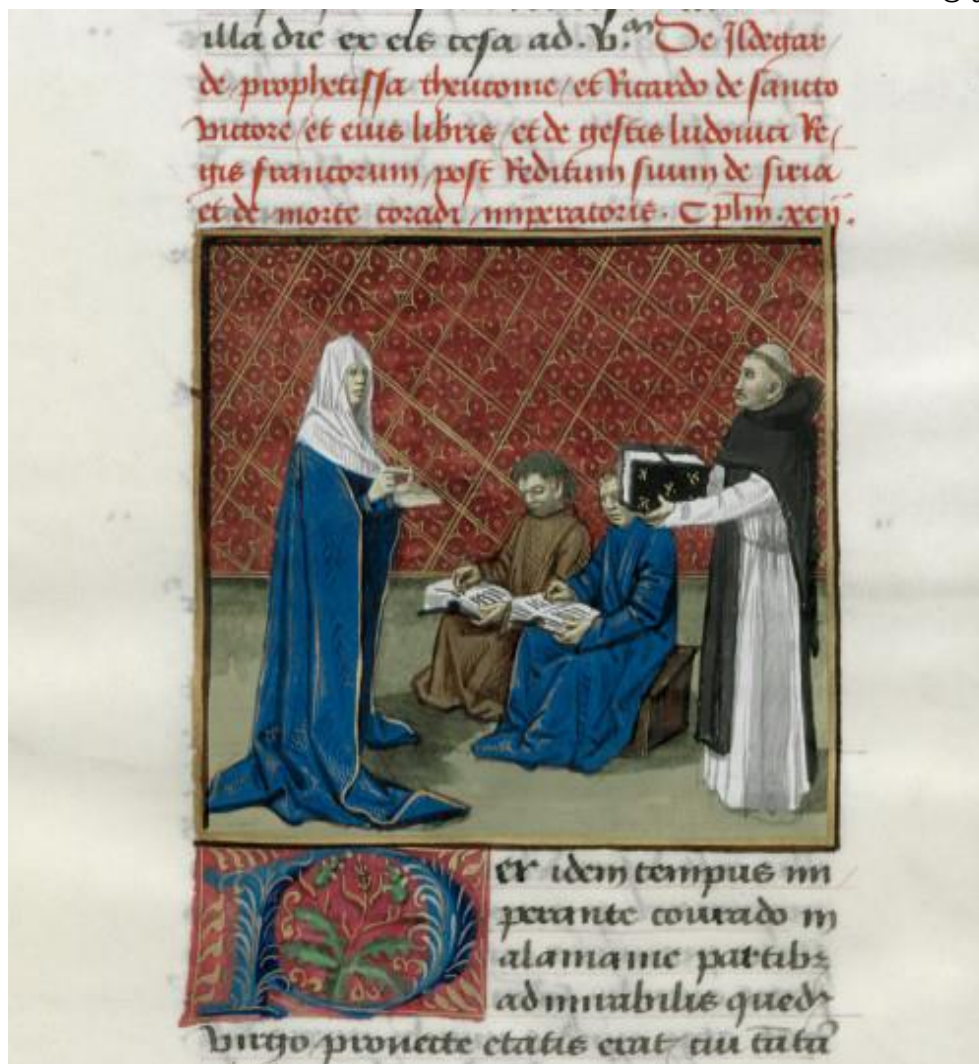 illa die ex eis cesa ad .V.m De Ildegar
de prophetissa theutonie / et Ricardo de sancto
victore / et eius libris et de gestis ludovici Re/
gis francorum post Reditum suum de siria
et de morte coradi imperatoris. Cplm. xcij.
Per idem tempus im
perante conrado in
alamanie partibz
admirabilis quedam
virgo provecte etatis erat cui